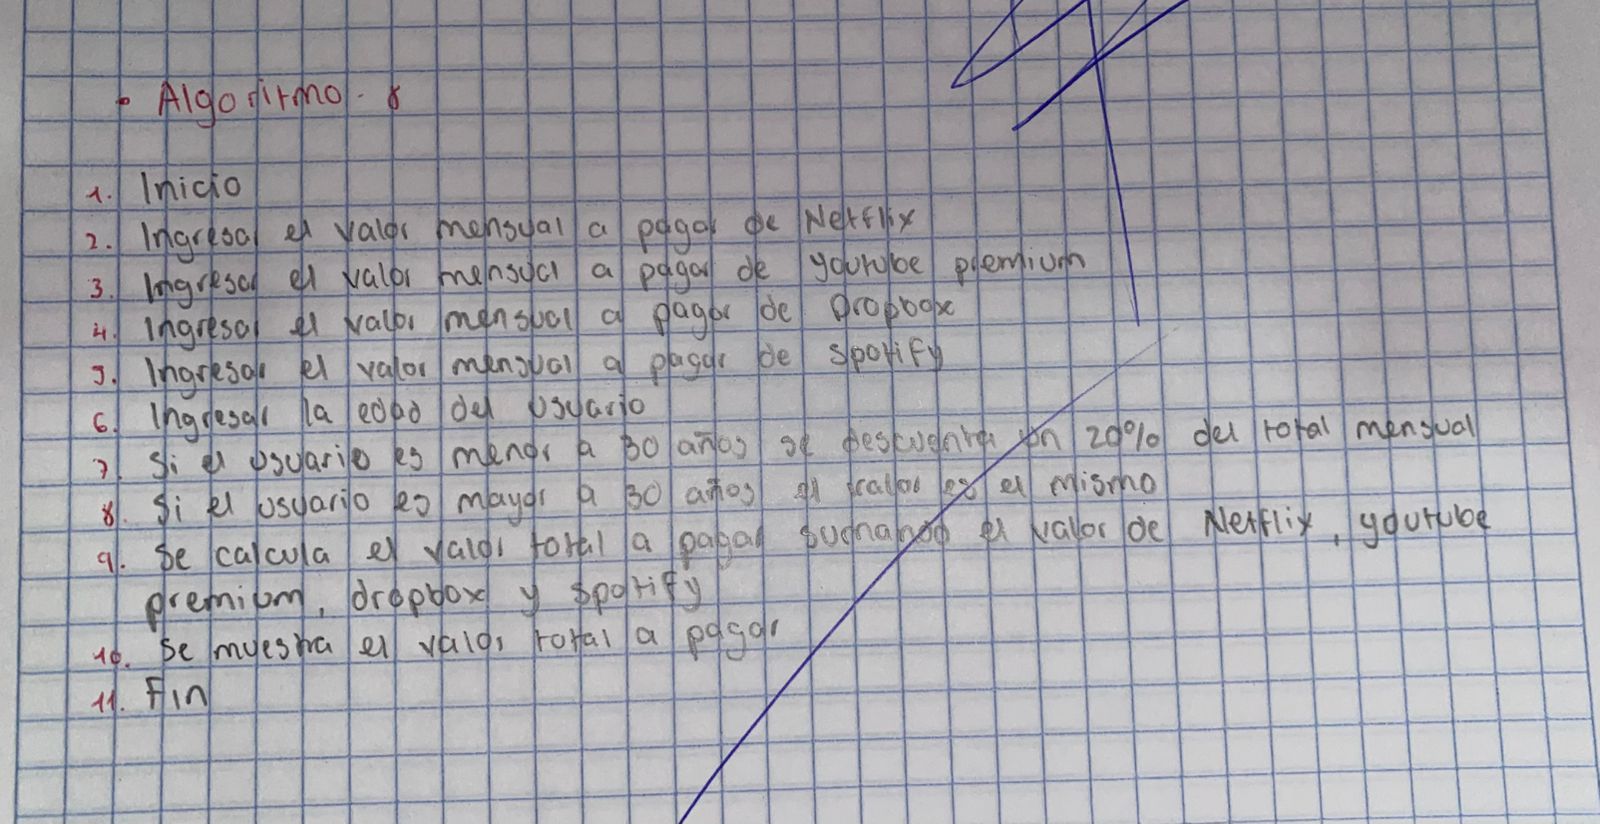 • Algoritmo. 8
1. Inicio
2. Ingresar el valor mensual a pagar de Netflix
3. Ingresar el valor mensual a pagar de youtube premium
4. Ingresar el valor mensual a pagar de Dropbox
5. Ingresar el valor mensual a pagar de spotify
6. Ingresar la edad del usuario
7. Si el usuario es menor a 30 años se descuenta un 20% del total mensual
8. Si el usuario es mayor a 30 años el valor es el mismo
9. Se calcula el valor total a pagar sumando el valor de Netflix, youtube
premium, dropbox y spotify
10. Se muestra el valor total a pagar
11. Fin